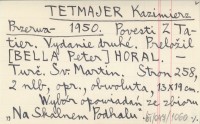 TETMAJER Kazimierz
Przerwa - 1950. Povesti z Ta-
tier. Vydanie druhé. Preložil
[BELLA Peter] HORAL -
Turč. Sv. Martin. Stron 258,
2 nlb, opr., obwoluta, 13x19 cm.
Wybór opowiadań ze zbioru
"Na Skalnem Podhalu".